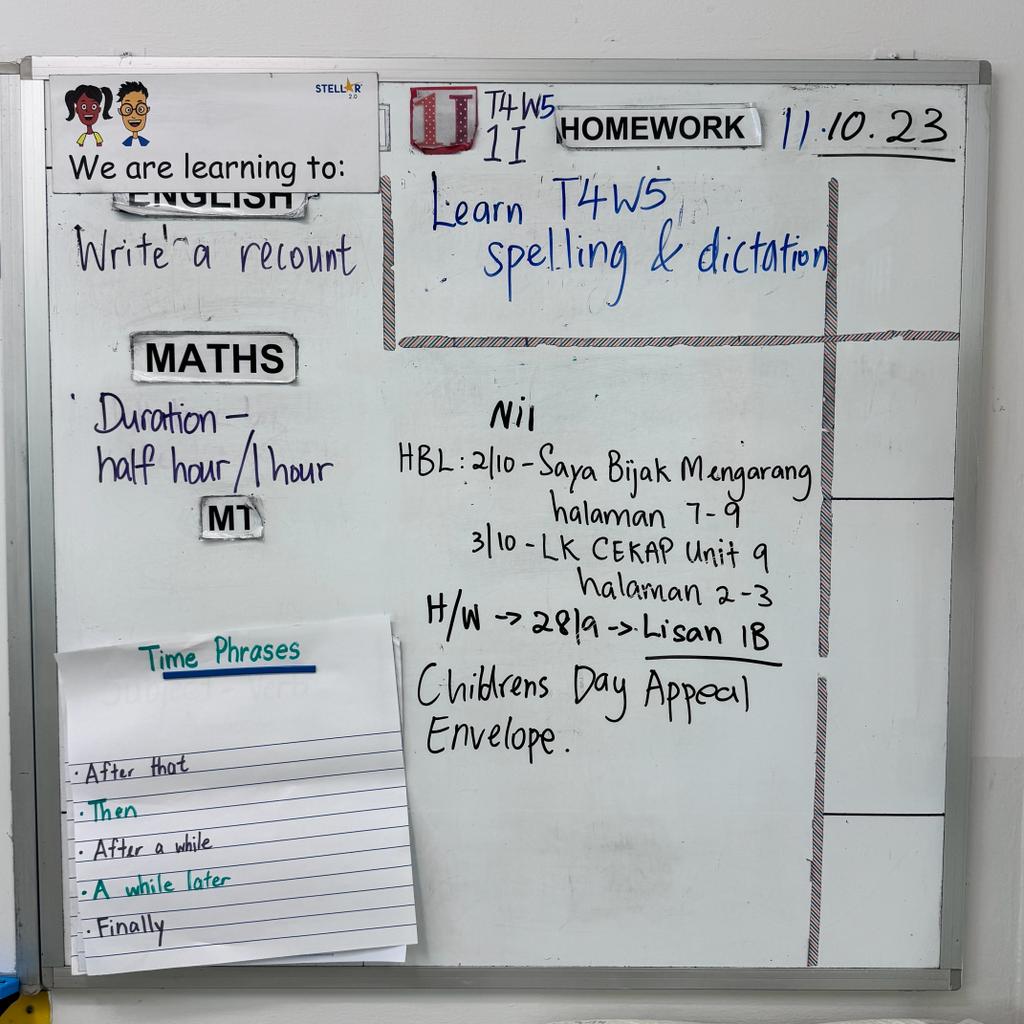 STELLAR
2.0
We are learning to:
ENGLISH
Write a recount
MATHS
Duration –
half hour/1 hour
MT
Time Phrases
· After that
· Then
· After a while
· A while later
· Finally
T4W5
1I
HOMEWORK
11.10.23
Learn T4W5
spelling & dictation
Nil
HBL: 2/10 - Saya Bijak Mengarang
halaman 7-9
3/10 - LK CEKAP Unit 9
halaman 2-3
H/W → 28/9 → Lisan 1B
Childrens Day Appeal
Envelope.